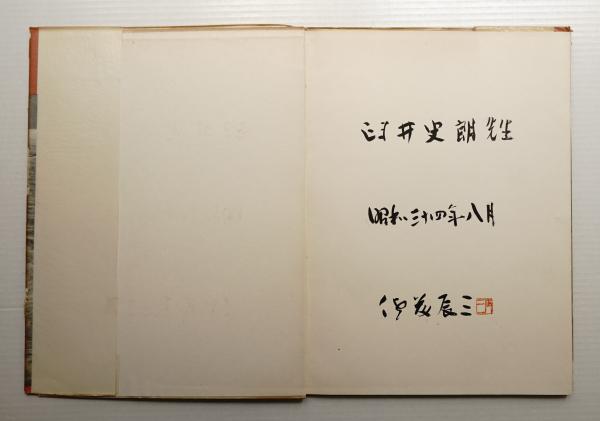 臼井史朗先生
昭和三十四年八月
佐藤辰三